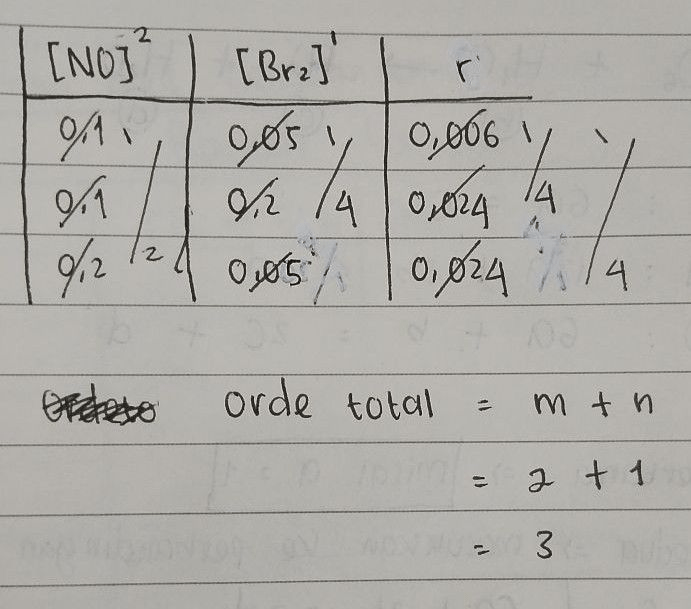 [NO]² [Br₂]¹ r
0,1 1 0,05 1 0,006 1 1
0,1 0,2 4 0,024 4
0,2 2 0,05 0,024 4
orde total = m + n
= 2 + 1
= 3